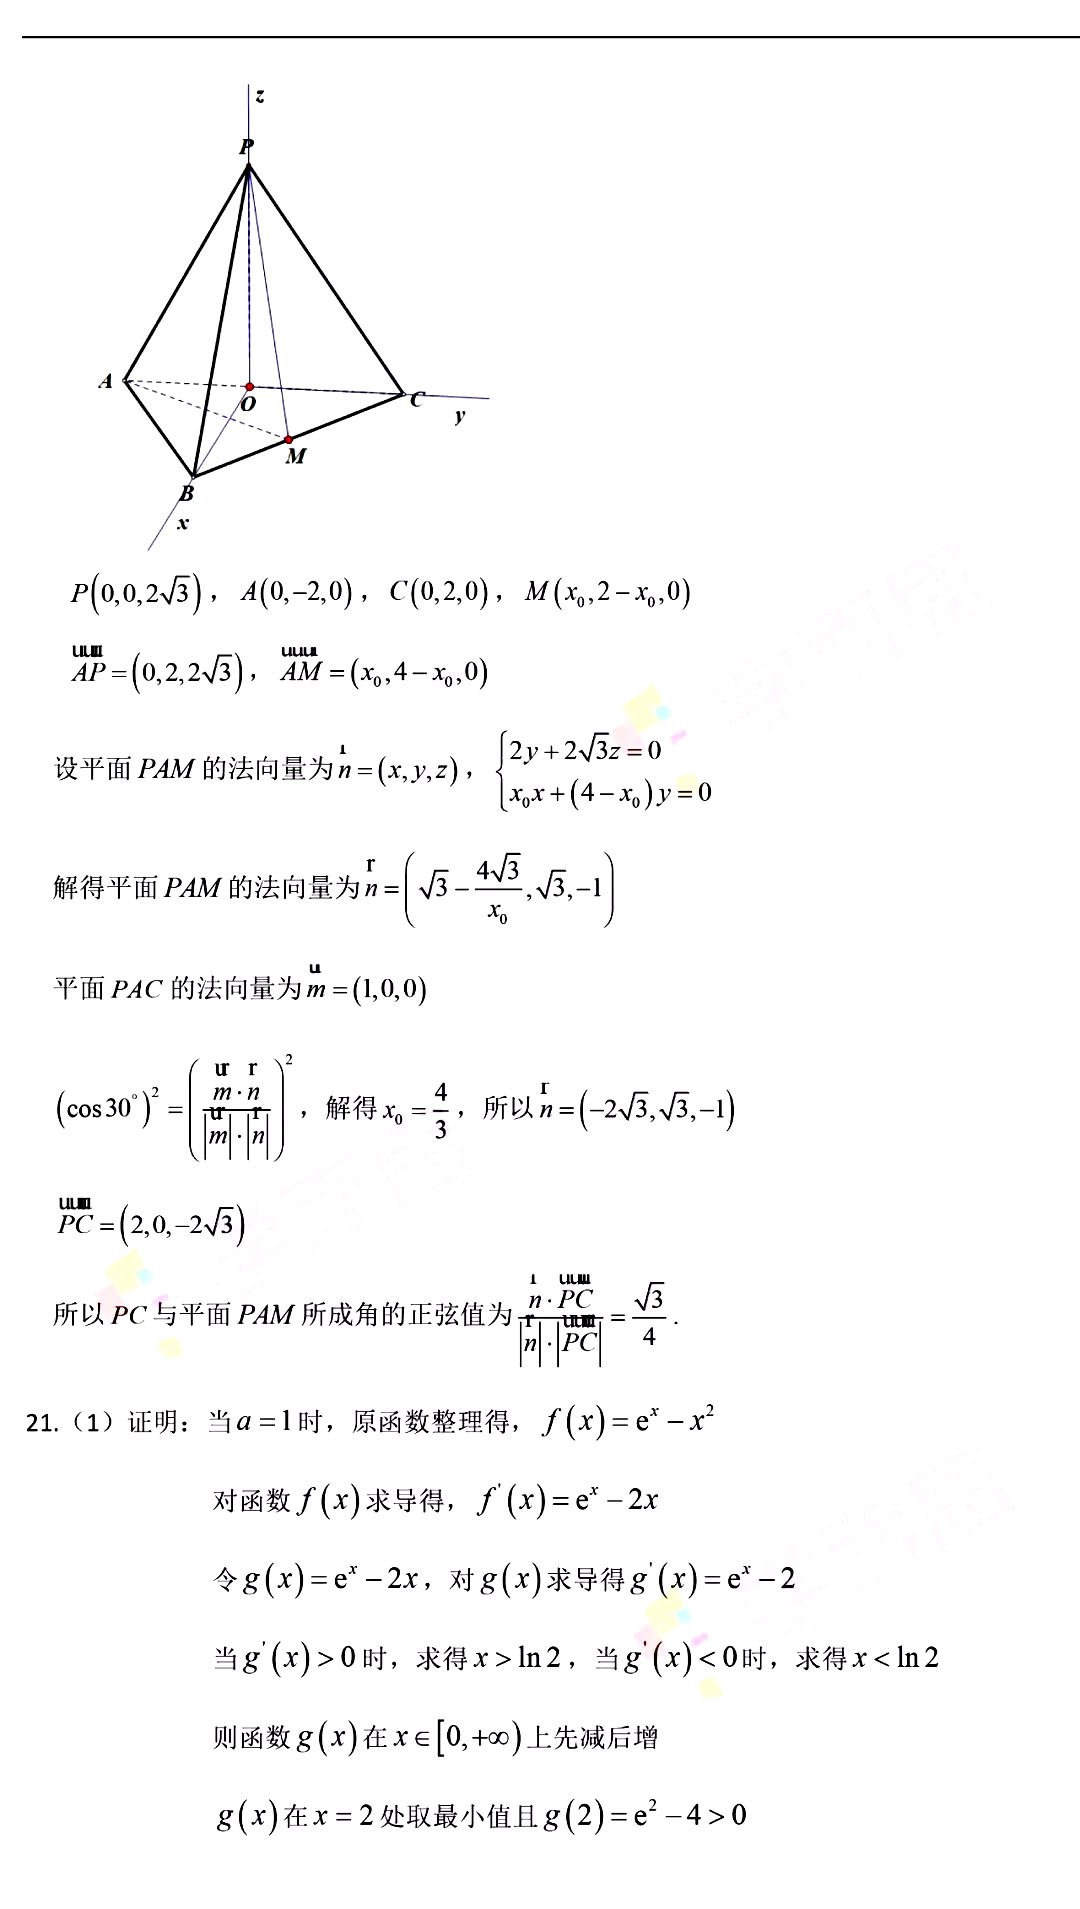 z
P
A
O
C
y
M
B
x
P(0,0,2√3)，A(0,−2,0)，C(0,2,0)，M(x₀,2−x₀,0)
AP=(0,2,2√3)，AM=(x₀,4−x₀,0)
设平面 PAM 的法向量为 n=(x,y,z)，{2y+2√3z=0
x₀x+(4−x₀)y=0
解得平面 PAM 的法向量为 n=(√3−4√3/x₀,√3,−1)
平面 PAC 的法向量为 m=(1,0,0)
(cos30°)²=(m·n/|m|·|n|)²，解得 x₀=4/3，所以 n=(−2√3,√3,−1)
PC=(2,0,−2√3)
所以 PC 与平面 PAM 所成角的正弦值为 n·PC/|n|·|PC|=√3/4.
21.（1）证明：当 a=1时，原函数整理得，f(x)=eˣ−x²
对函数 f(x) 求导得，f'(x)=eˣ−2x
令 g(x)=eˣ−2x，对 g(x) 求导得 g'(x)=eˣ−2
当 g'(x)>0 时，求得 x>ln2，当 g'(x)<0时，求得 x<ln2
则函数 g(x) 在 x∈[0,+∞) 上先减后增
g(x) 在 x=2 处取最小值且 g(2)=e²−4>0